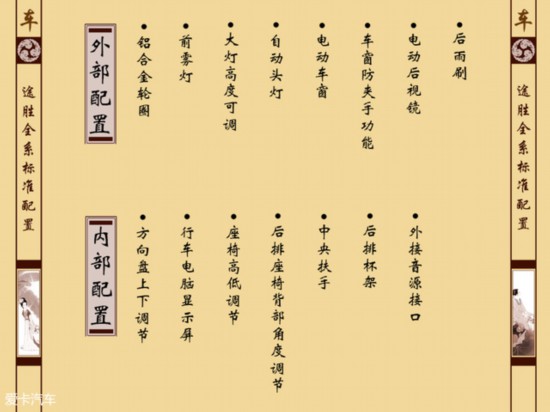 车
途胜全系标准配置
外部配置
铝合金轮圈
前雾灯
大灯高度可调
自动头灯
电动车窗
车窗防夹手功能
电动后视镜
后雨刷
内部配置
方向盘上下调节
行车电脑显示屏
座椅高低调节
后排座椅背部角度调节
中央扶手
后排杯架
外接音源接口
车
途胜全系标准配置
爱卡汽车